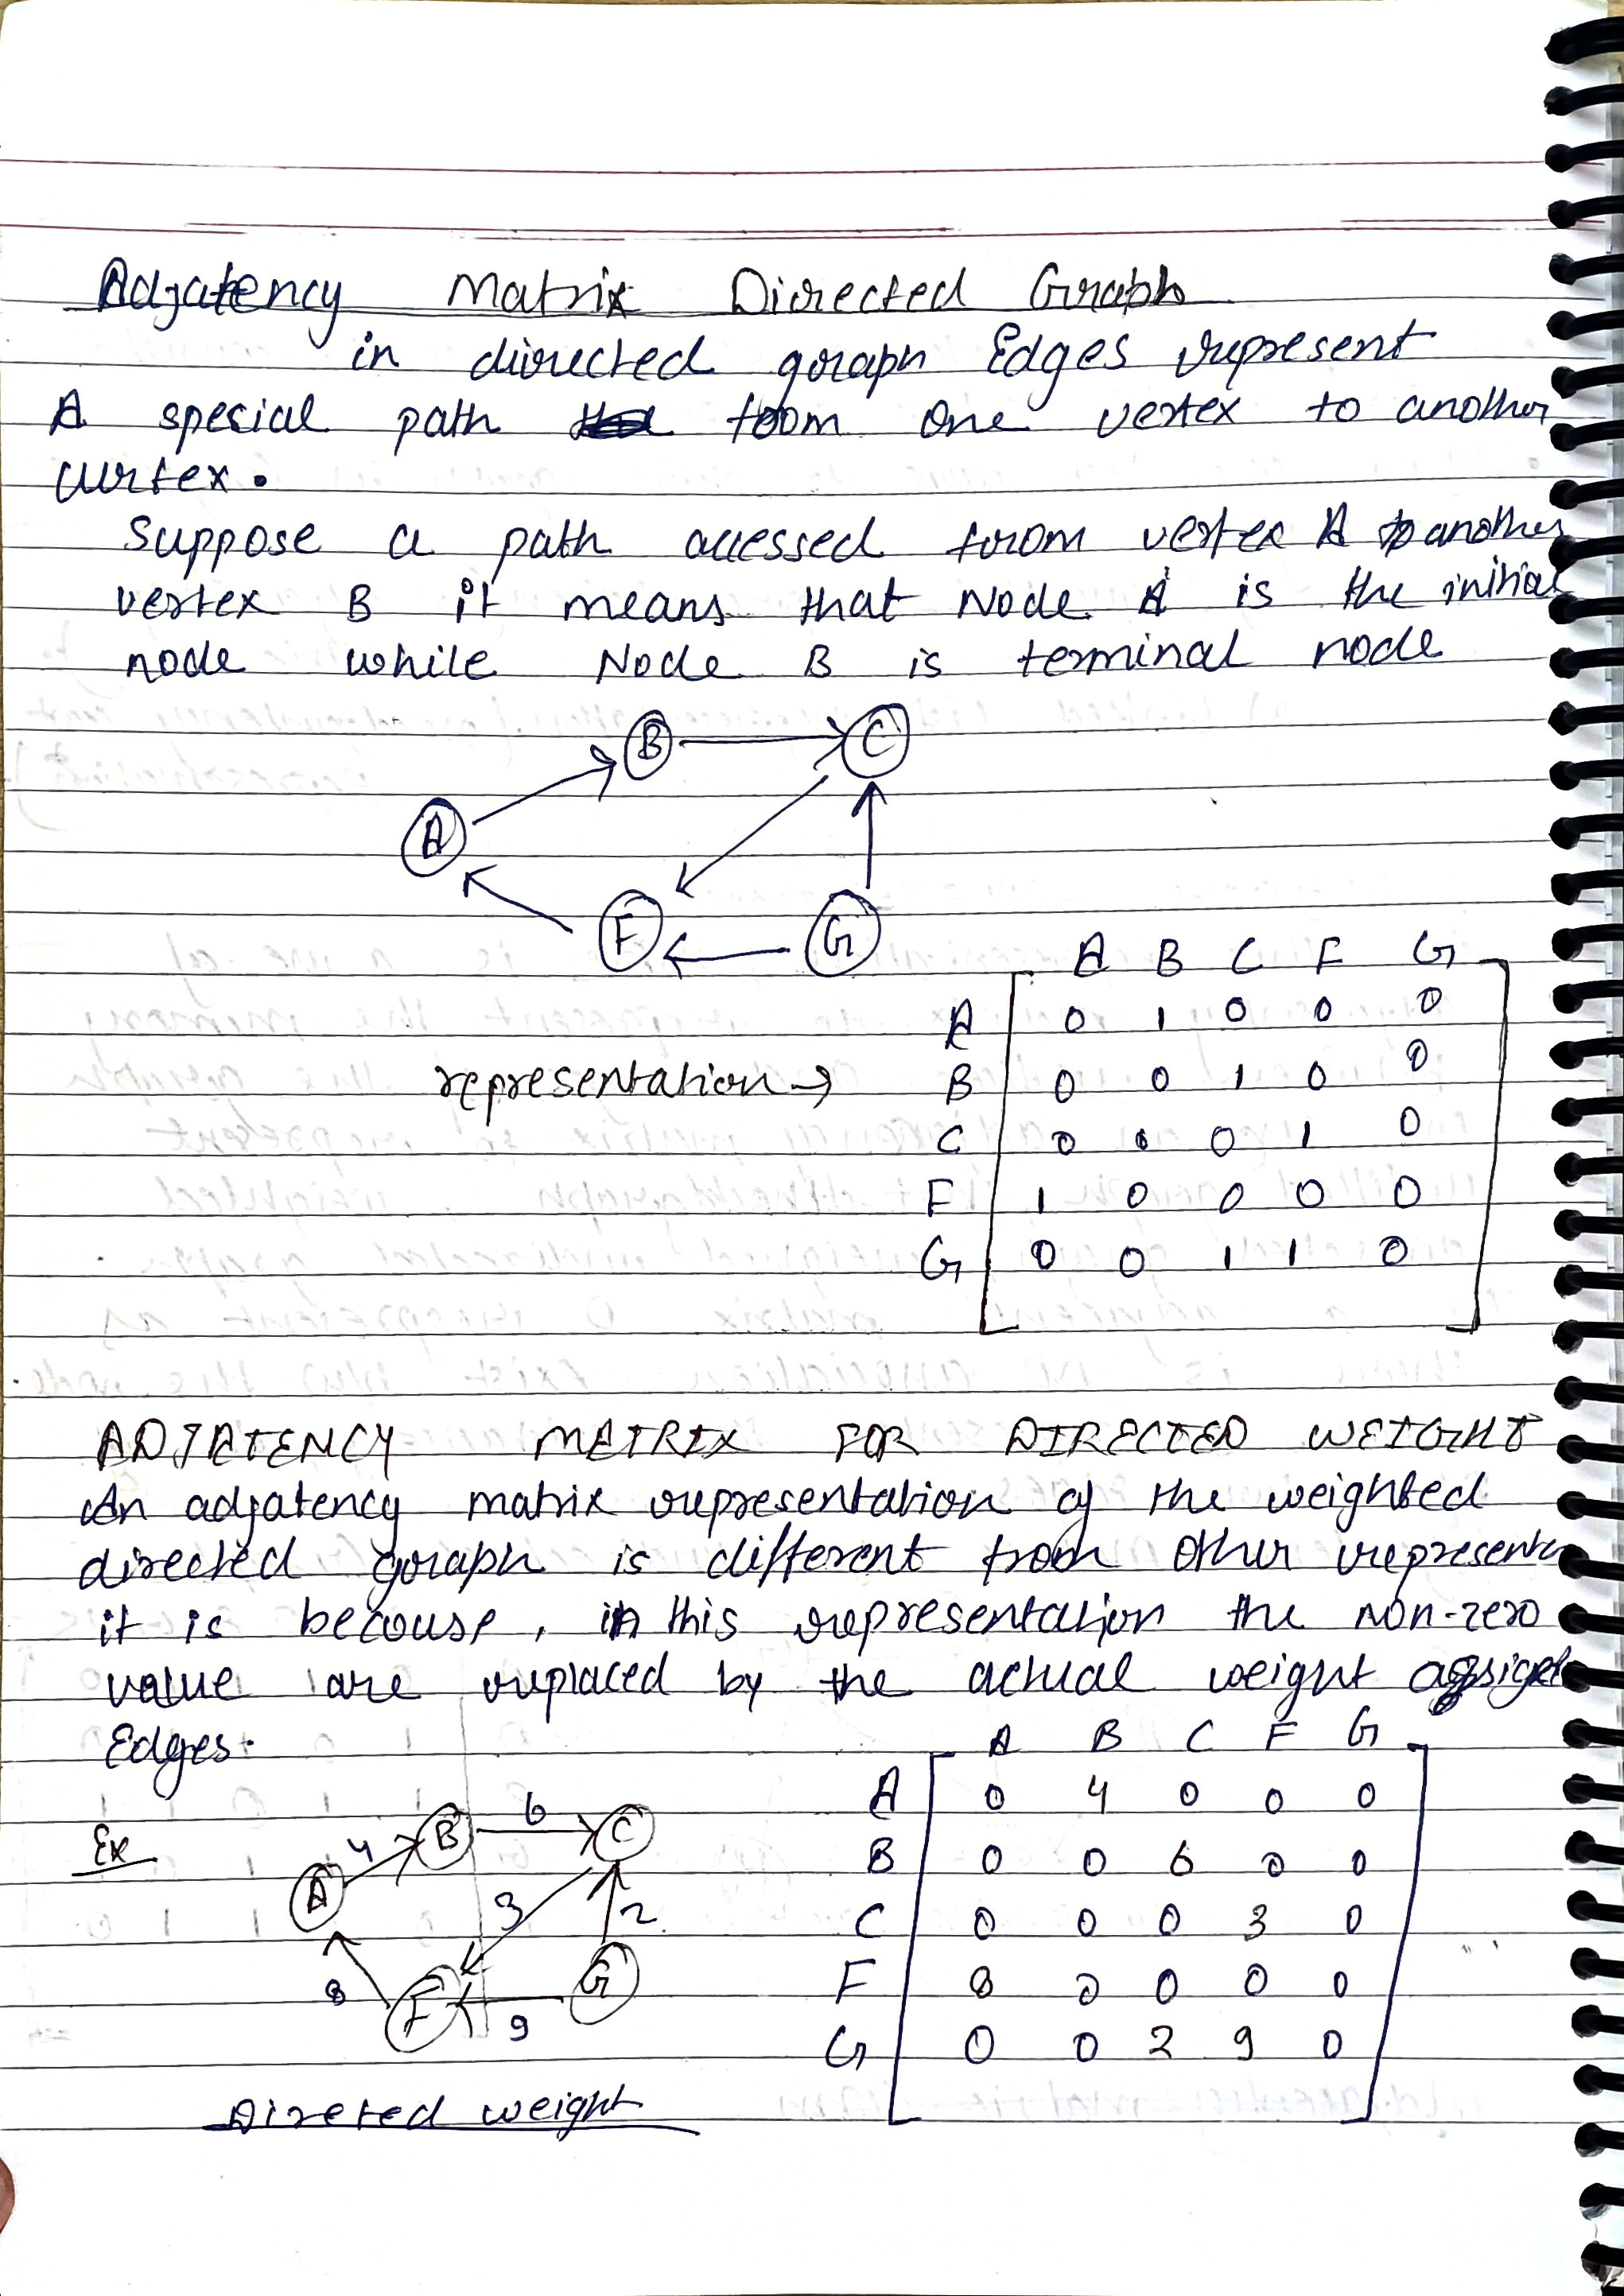 Adjatency Matrix Directed Graph
in directed graph Edges represent
A special path from one vertex to another
vertex.
Suppose a path accessed from vertex A to another
vertex B it means that Node A is the initial
node while Node B is terminal node
B C
A
F G
A B C F G
A 0 1 0 0 0
representation →
B 0 0 1 0 0
C 0 0 0 1 0
F 1 0 0 0 0
G 0 0 1 1 0
ADJATENCY MATRIX FOR DIRECTED WEIGHT
An adjatency matrix representation of the weighted
directed graph is different from other represent
it is becouse, in this representation the non-zero
value are replaced by the actual weight
Edges.
A B C F G
A 0 4 0 0 0
B 0 0 6 0 0
C 0 0 0 3 0
F 8 0 0 0 0
G 0 0 2 9 0
Ex
4 B 6 C
A
3 2
8 F 9 G
Direted weight